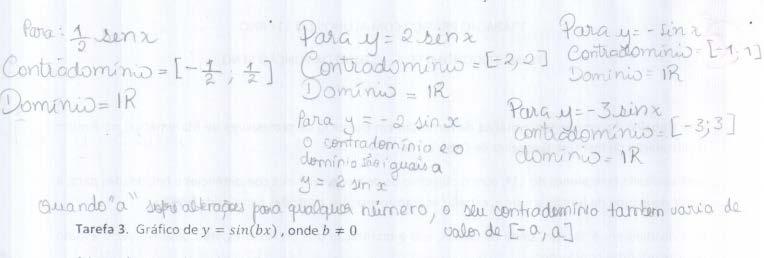 Para: 1/2 sen x
Contradomínio = [-1/2 ; 1/2]
Domínio = IR
Para y = 2 sin x
Contradomínio = [-2, 2]
Domínio = IR
Para y = -2 sin x
o contradomínio e o
domínio são iguais a
y = 2 sin x
Para y = - sin x
Contradomínio = [-1, 1]
Domínio = IR
Para y = -3 sin x
contradomínio = [-3; 3]
domínio = IR
Quando "a" sofre alterações para qualquer número, o seu contradomínio também varia de
valor de [-a, a]
Tarefa 3. Gráfico de y = sin(bx), onde b ≠ 0